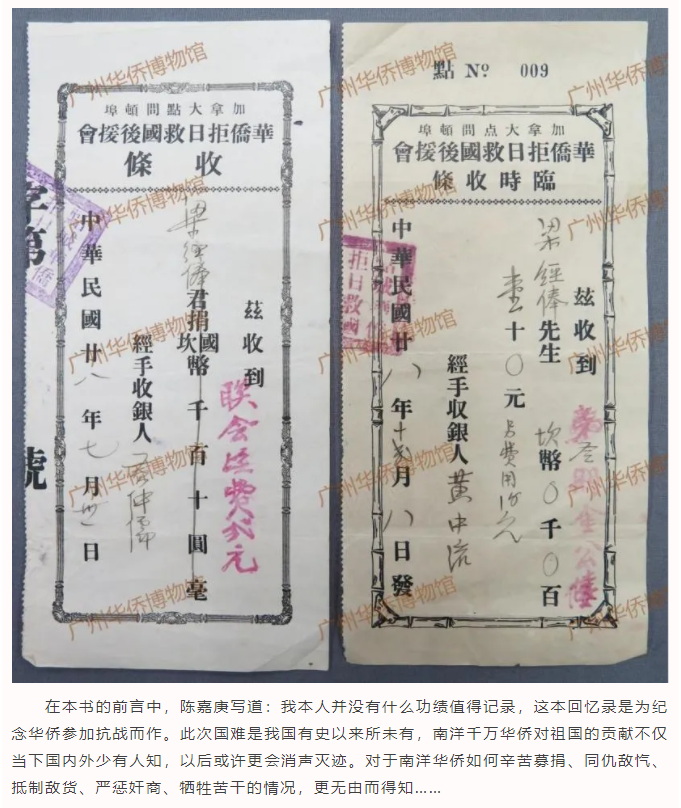 加拿大點問頓埠
華僑拒日救國後援會
收條
茲收到
梁經俸君捐坎國幣千百十圓毫
聯會經費弍元
經手收銀人
中華民國廿八年七月卅一日
字第
號
點 Nº 009
加拿大点問頓埠
華僑拒日救國後援會
臨時收條
茲收到
梁經俸先生 坎幣0千0百
壹十0元
經手収銀人黃中流
中華民國廿八年十弍月八日發
拒日救國
广州华侨博物馆
在本书的前言中，陈嘉庚写道：我本人并没有什么功绩值得记录，这本回忆录是为纪
念华侨参加抗战而作。此次国难是我国有史以来所未有，南洋千万华侨对祖国的贡献不仅
当下国内外少有人知，以后或许更会消声灭迹。对于南洋华侨如何辛苦募捐、同仇敌忾、
抵制敌货、严惩奸商、牺牲苦干的情况，更无由而得知……